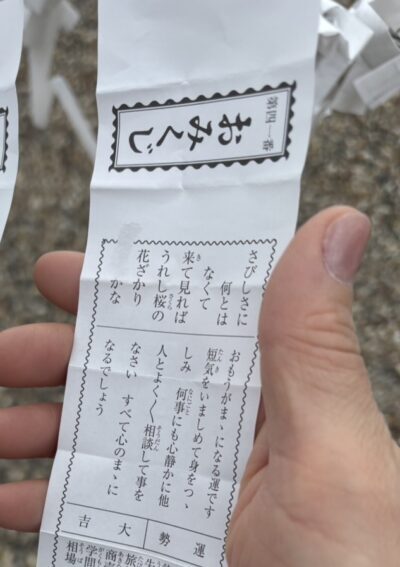 第四一番
おみくじ
さびしさに
何とは
なくて
来て見れば
うれし桜の
花ざかり
かな
おもうがまゝになる運です
短気をいましめて身をつゝ
しみ 何事にも心静かに他
人とよく〱相談して事を
なさい すべて心のまゝに
なるでしょう
運勢
大吉
学問
相場